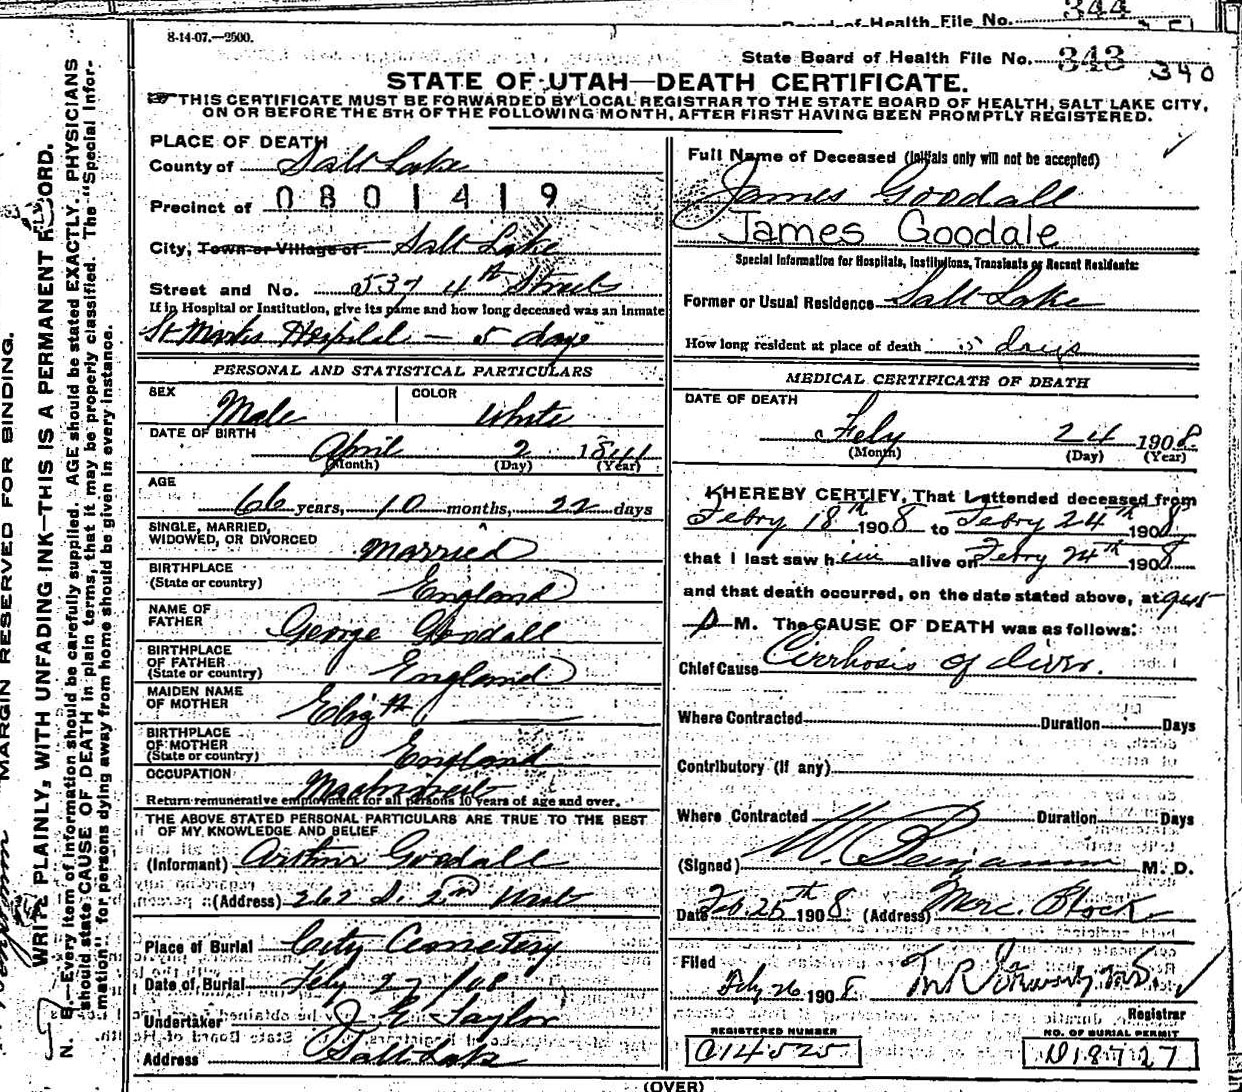 344
Board of Health File No.
8-14-07.—2500.
State Board of Health File No. 343 340
STATE OF UTAH—DEATH CERTIFICATE.
☞ THIS CERTIFICATE MUST BE FORWARDED BY LOCAL REGISTRAR TO THE STATE BOARD OF HEALTH, SALT LAKE CITY,
ON OR BEFORE THE 5TH OF THE FOLLOWING MONTH, AFTER FIRST HAVING BEEN PROMPTLY REGISTERED.
MARGIN RESERVED FOR BINDING.
WRITE PLAINLY, WITH UNFADING INK—THIS IS A PERMANENT RECORD.
N. B.—Every item of information should be carefully supplied. AGE should be stated EXACTLY. PHYSICIANS
should state CAUSE OF DEATH in plain terms, that it may be properly classified. The "Special Infor-
mation" for persons dying away from home should be given in every instance.
PLACE OF DEATH
County of Salt Lake
Precinct of 0801419
City, Town or Village of Salt Lake
Street and No. 537 4th Street
If in Hospital or Institution, give its name and how long deceased was an inmate
St Marks Hospital — 5 days
PERSONAL AND STATISTICAL PARTICULARS
SEX Male COLOR White
DATE OF BIRTH April 2 1841
(Month) (Day) (Year)
AGE
66 years, 10 months, 22 days
SINGLE, MARRIED,
WIDOWED, OR DIVORCED Married
BIRTHPLACE
(State or country) England
NAME OF
FATHER George Goodall
BIRTHPLACE
OF FATHER
(State or country) England
MAIDEN NAME
OF MOTHER Elizth
BIRTHPLACE
OF MOTHER
(State or country) England
OCCUPATION Machinist
Return remunerative employment for all persons 10 years of age and over.
THE ABOVE STATED PERSONAL PARTICULARS ARE TRUE TO THE BEST
OF MY KNOWLEDGE AND BELIEF
(Informant) Arthur Goodall
(Address) 262 S. 2nd West
Place of Burial City Cemetery
Date of Burial Feby 27/08
Undertaker J E Taylor
Address Salt Lake
Full Name of Deceased (Initials only will not be accepted)
James Goodall
James Goodale
Special Information for Hospitals, Institutions, Transients or Recent Residents:
Former or Usual Residence Salt Lake
How long resident at place of death 5 days
MEDICAL CERTIFICATE OF DEATH
DATE OF DEATH
Feby 24 1908
(Month) (Day) (Year)
I HEREBY CERTIFY, That I attended deceased from
Febry 18th 1908 to Febry 24th 1908
that I last saw him alive on Febry 24th 1908
and that death occurred, on the date stated above, at 945
P M. The CAUSE OF DEATH was as follows:
Chief Cause Cirrhosis of Liver.
Where Contracted Duration Days
Contributory (if any)
Where Contracted Duration Days
(Signed) W. Benjamin M. D.
Date Feb. 25th 1908 (Address) Merc. Block
Filed
Feby 26 1908
Registrar
REGISTERED NUMBER
C14525
NO. OF BURIAL PERMIT
D18727
(OVER)